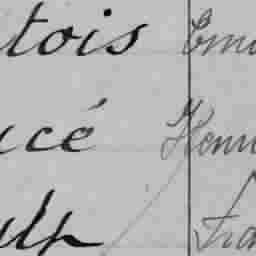 tois Emi
ucé Henri
ulp Fra